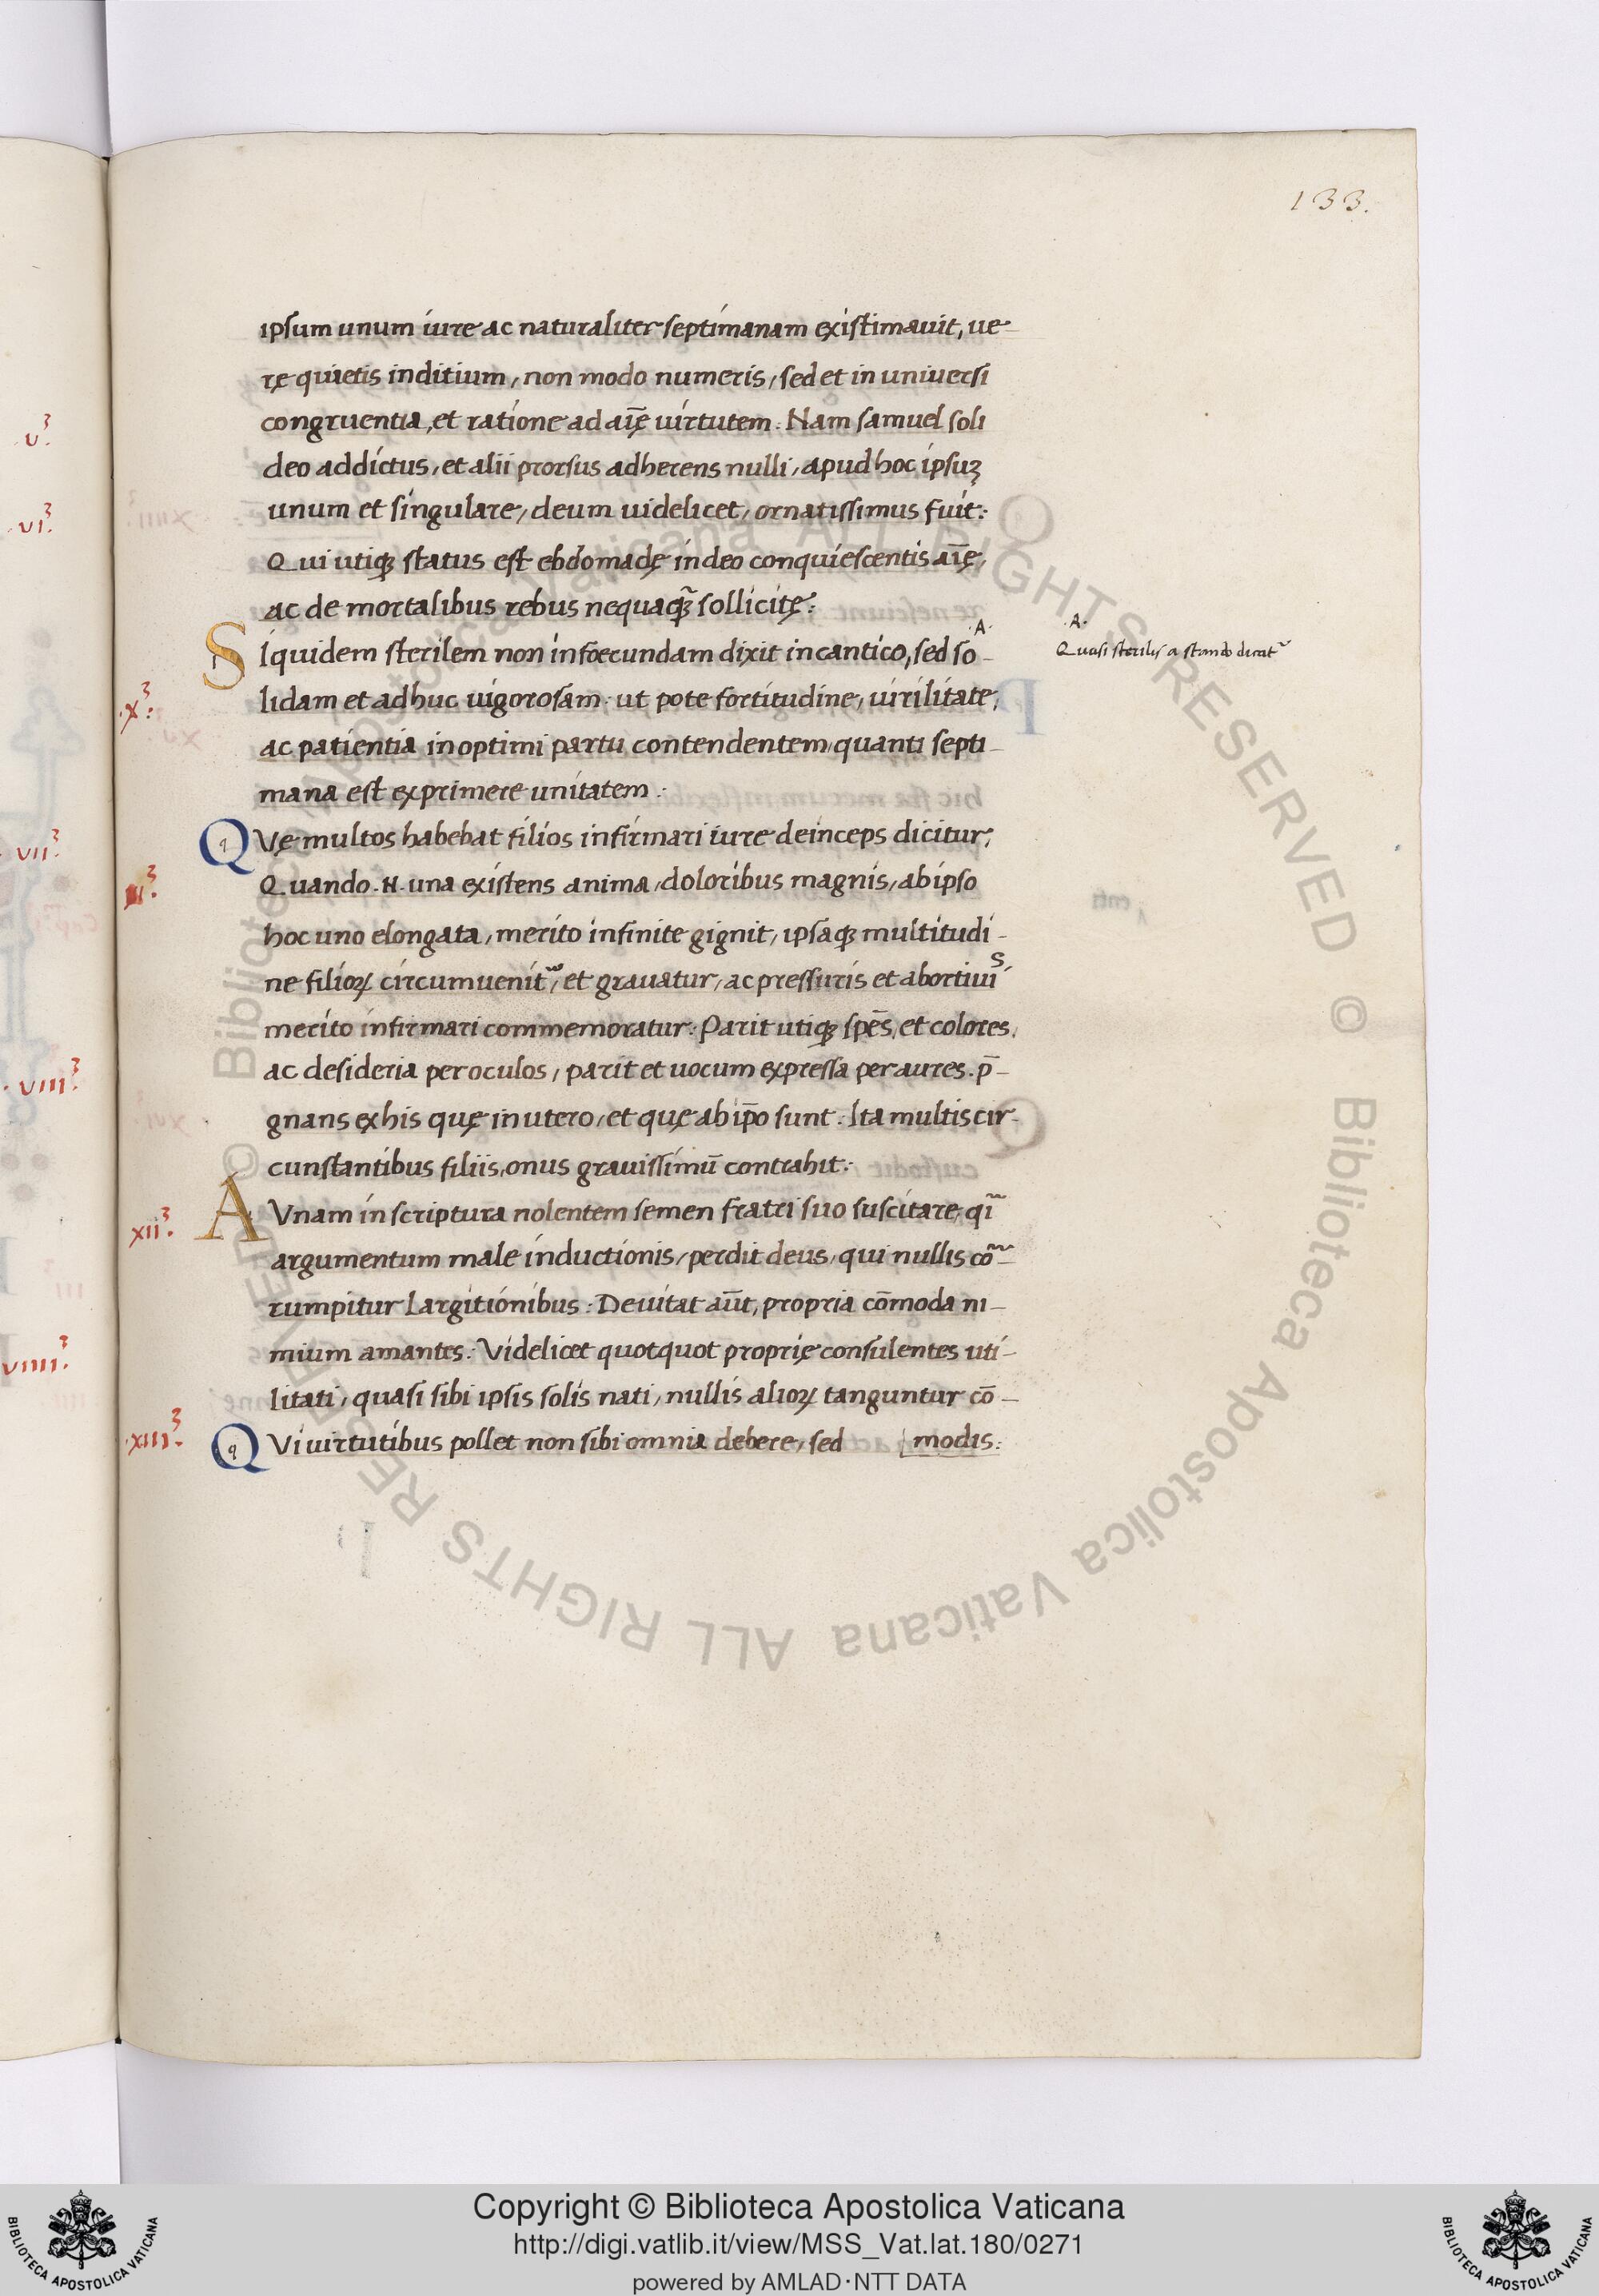 133.
ipsum unum iure ac naturaliter septimanam existimauit, ue-
rę quietis inditium, non modo numeris, sed et in uniuersi
congruentia, et ratione ad aīę uirtutem. Nam samuel soli
deo addictus, et alii prorsus adherens nulli, apud hoc ipsuꝫ
unum et singulare, deum uidelicet, ornatissimus fuit:
Qui utiqꝫ status est ebdomadę in deo conquiescentis aīę,
ac de mortalibus rebus nequaq̃ꝫ sollicitę:
SIquidem sterilem non infoecundam dixit in cantico, sed so-
.A.
.A.
Quasi sterilis a stando dicat~
.x.ꝫ
lidam et adhuc uigorosam. ut pote fortitudine, uirilitate,
ac patientia in optimi partu contendentem, quanti septi-
mana est exprimere unitatem:
QVę multos habebat filios infirmari iure deinceps dicitur,
Quando .N. una existens anima, doloribus magnis, ab ipso
hoc uno elongata, merito infinite gignit, ipsaqꝫ multitudi-
ne filioꝝ circumuenit~, et grauatur, ac pressuris et abortiuis
merito infirmari commemoratur: Parit utiqꝫ spēs, et colores,
ac desideria per oculos, parit et uocum expressa per aures. p̄-
gnans ex his quę in utero, et quę ab ip̄o sunt: Ita multis cir-
cunstantibus filiis, onus grauissimū contrahit:
xii.ꝫ
AVnam in scriptura nolentem semen fratri suo suscitare, qı̃
argumentum male inductionis, perdit deus, qui nullis cõ-
rumpitur largitionibus: Deuitat aūt, propria cōmoda ni-
mium amantes: Videlicet quotquot proprię consulentes uti-
litati, quasi sibi ipsis solis nati, nullis alioꝝ tanguntur cō-
.xiii.ꝫ
QVi uirtutibus pollet non sibi omnia debere, sed modis:
.v.ꝫ
.vi.ꝫ
vii.ꝫ
.viii.ꝫ
viiii.ꝫ
© Biblioteca Apostolica Vaticana ALL RIGHTS RESERVED © Biblioteca Apostolica Vaticana ALL RIGHTS RESERVED
Copyright © Biblioteca Apostolica Vaticana
http://digi.vatlib.it/view/MSS_Vat.lat.180/0271
powered by AMLAD·NTT DATA
BIBLIOTECA APOSTOLICA VATICANA
BIBLIOTECA APOSTOLICA VATICANA